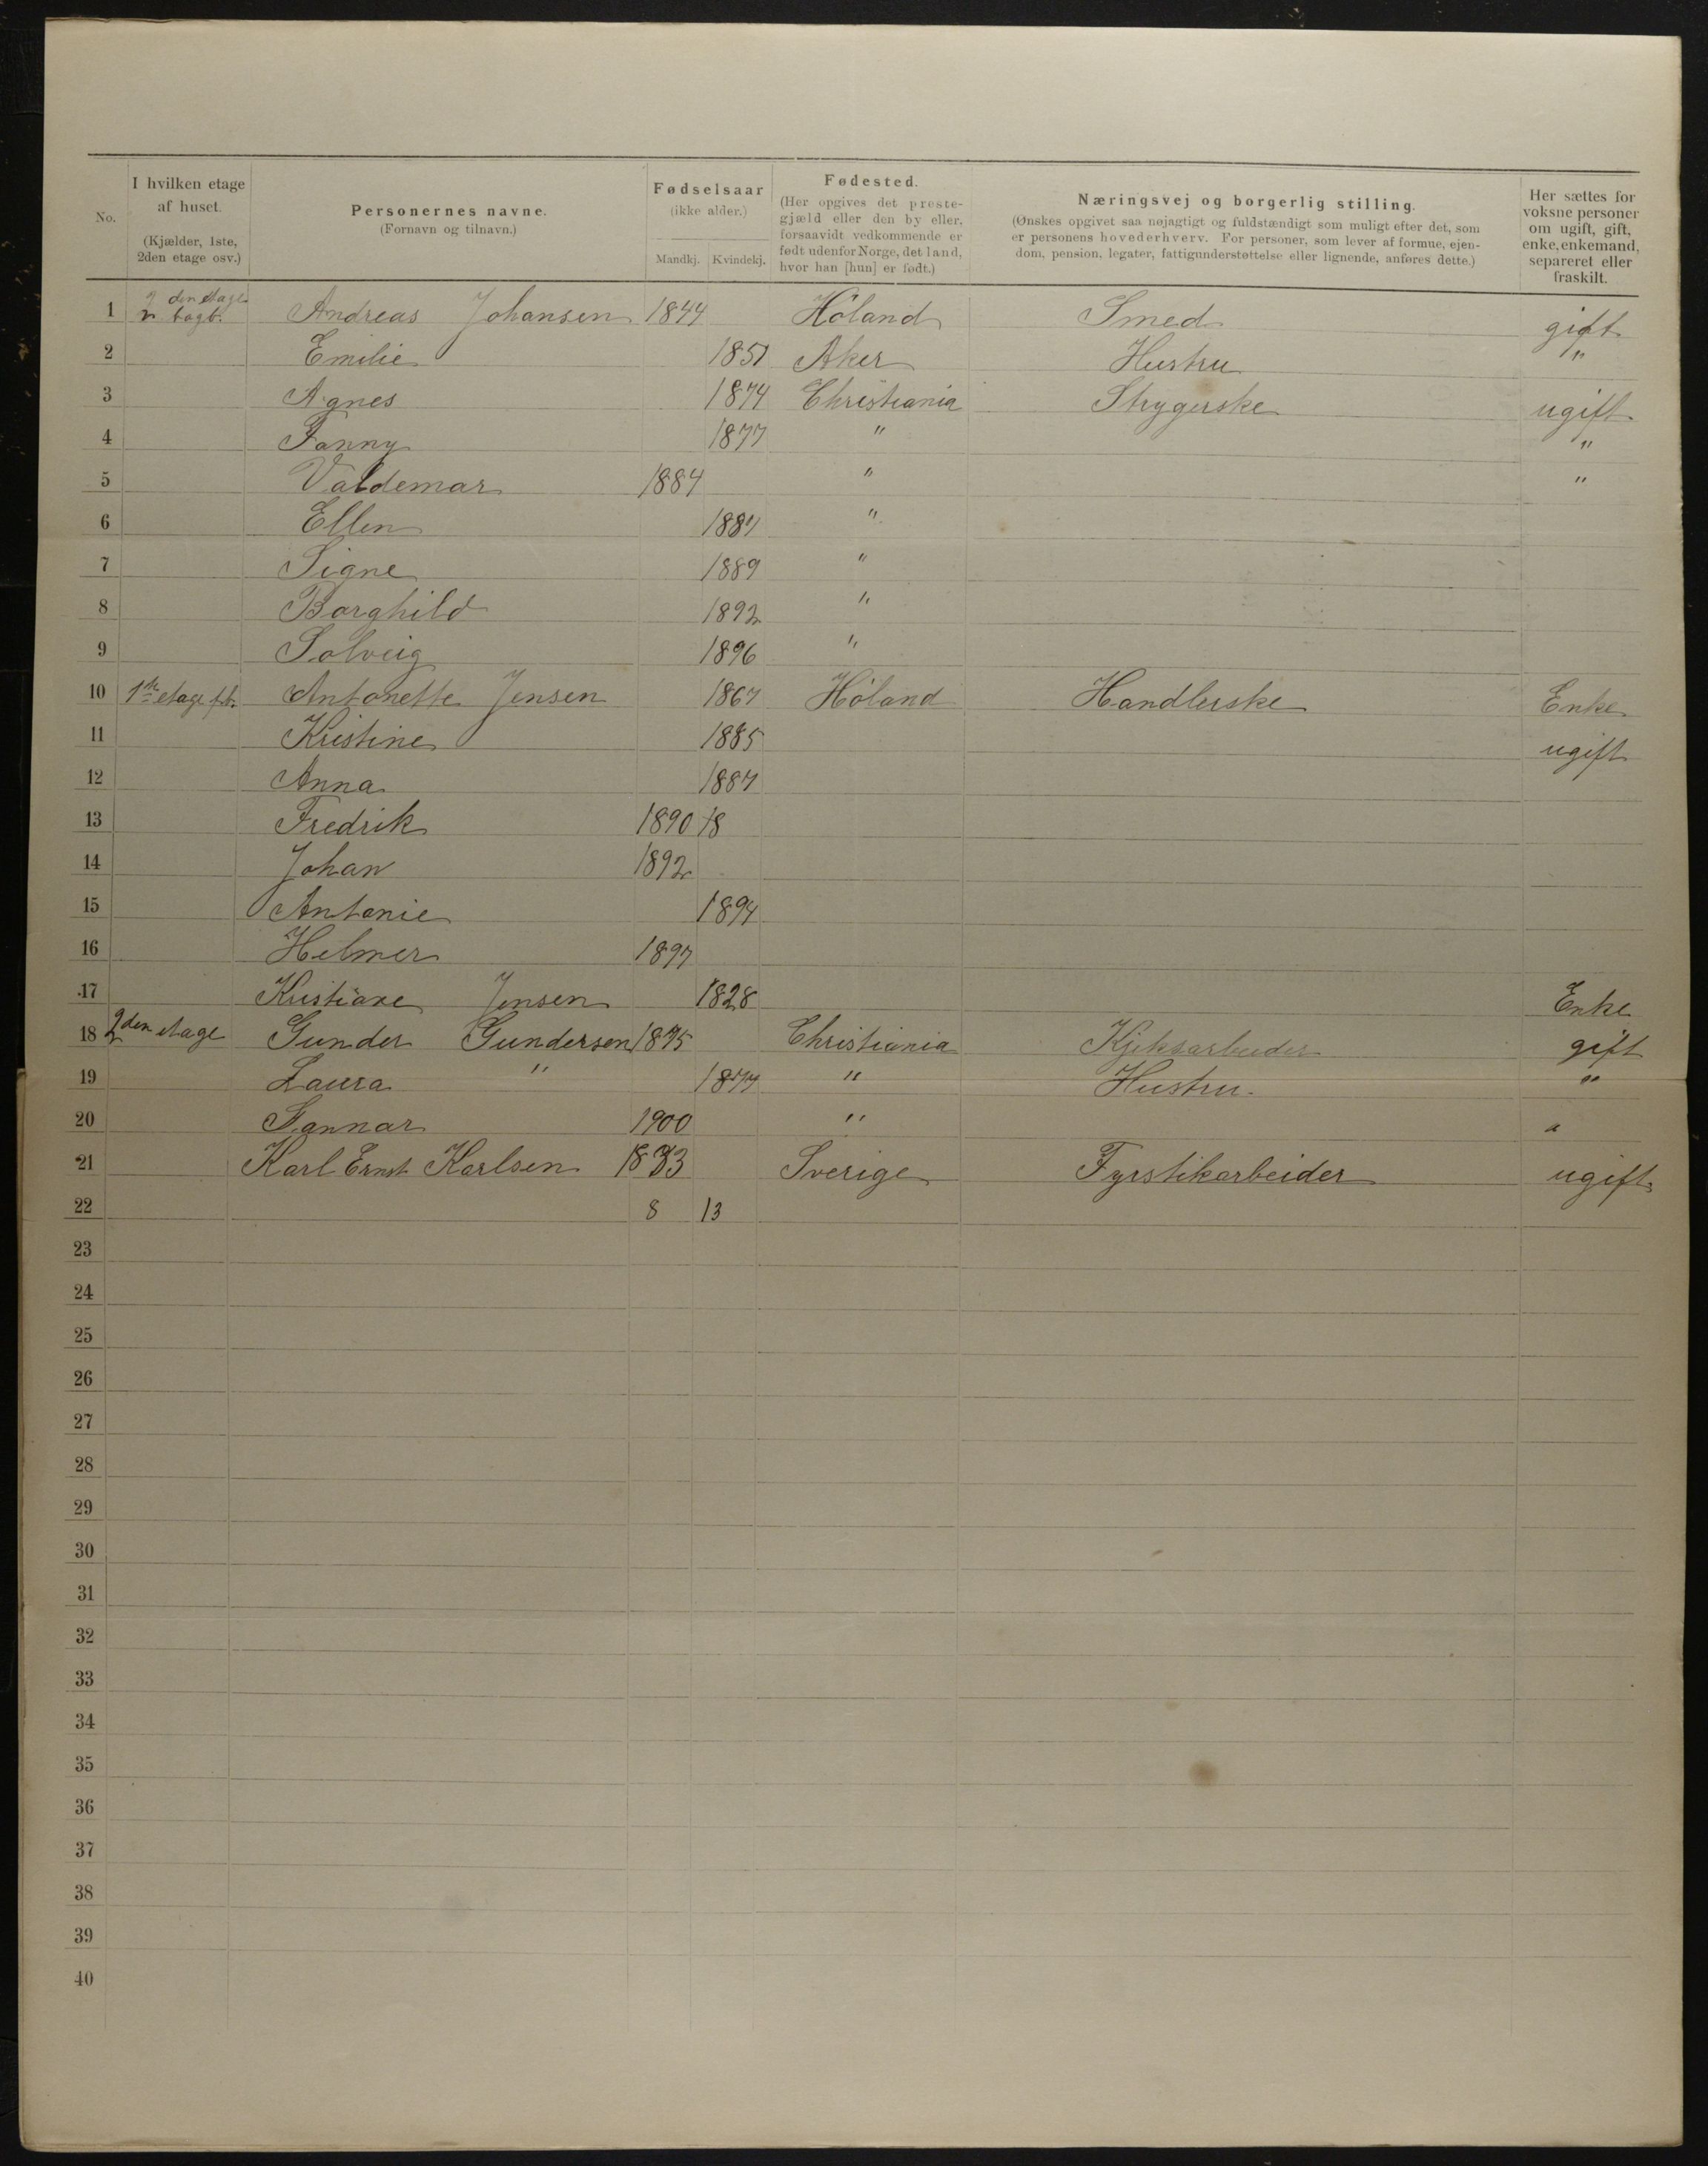 No.
I hvilken etage af huset. (Kjælder, 1ste, 2den etage osv.)
Personernes navne. (Fornavn og tilnavn.)
Fødselsaar (ikke alder.) Mandkj. Kvindekj.
Fødested. (Her opgives det prestegjæld eller den by eller, forsaavidt vedkommende er født udenfor Norge, det land, hvor han [hun] er født.)
Næringsvej og borgerlig stilling. (Ønskes opgivet saa nøjagtigt og fuldstændigt som muligt efter det, som er personens hovederhverv. For personer, som lever af formue, ejendom, pension, legater, fattigunderstøttelse eller lignende, anføres dette.)
Her sættes for voksne personer om ugift, gift, enke, enkemand, separeret eller fraskilt.
1 2 den etage bagb. Andreas Johansen 1844 Höland Smed gift
2 Emilie 1851 Aker Hustru "
3 Agnes 1874 Christiania Strygerske ugift
4 Fanny 1877 " "
5 Valdemar 1884 " "
6 Ellen 1887 "
7 Signe 1889 "
8 Borghild 1892 "
9 Solveig 1896 "
10 1ste etage fb. Antonette Jensen 1867 Höland Handlerske Enke
11 Kristine 1885 ugift
12 Anna 1887
13 Fredrik 1890 18
14 Johan 1892
15 Antonie 1894
16 Helmer 1897
17 Kristiane Jensen 1828 Enke
18 2den etage Gunder Gundersen 1875 Christiania Kjeksarbeider gift
19 Laura " 1877 " Hustru "
20 1900 "
21 Karl Ernst Karlsen Sverige Fyrstikarbeider ugift
22 8 13
23
24
25
26
27
28
29
30
31
32
33
34
35
36
37
38
39
40